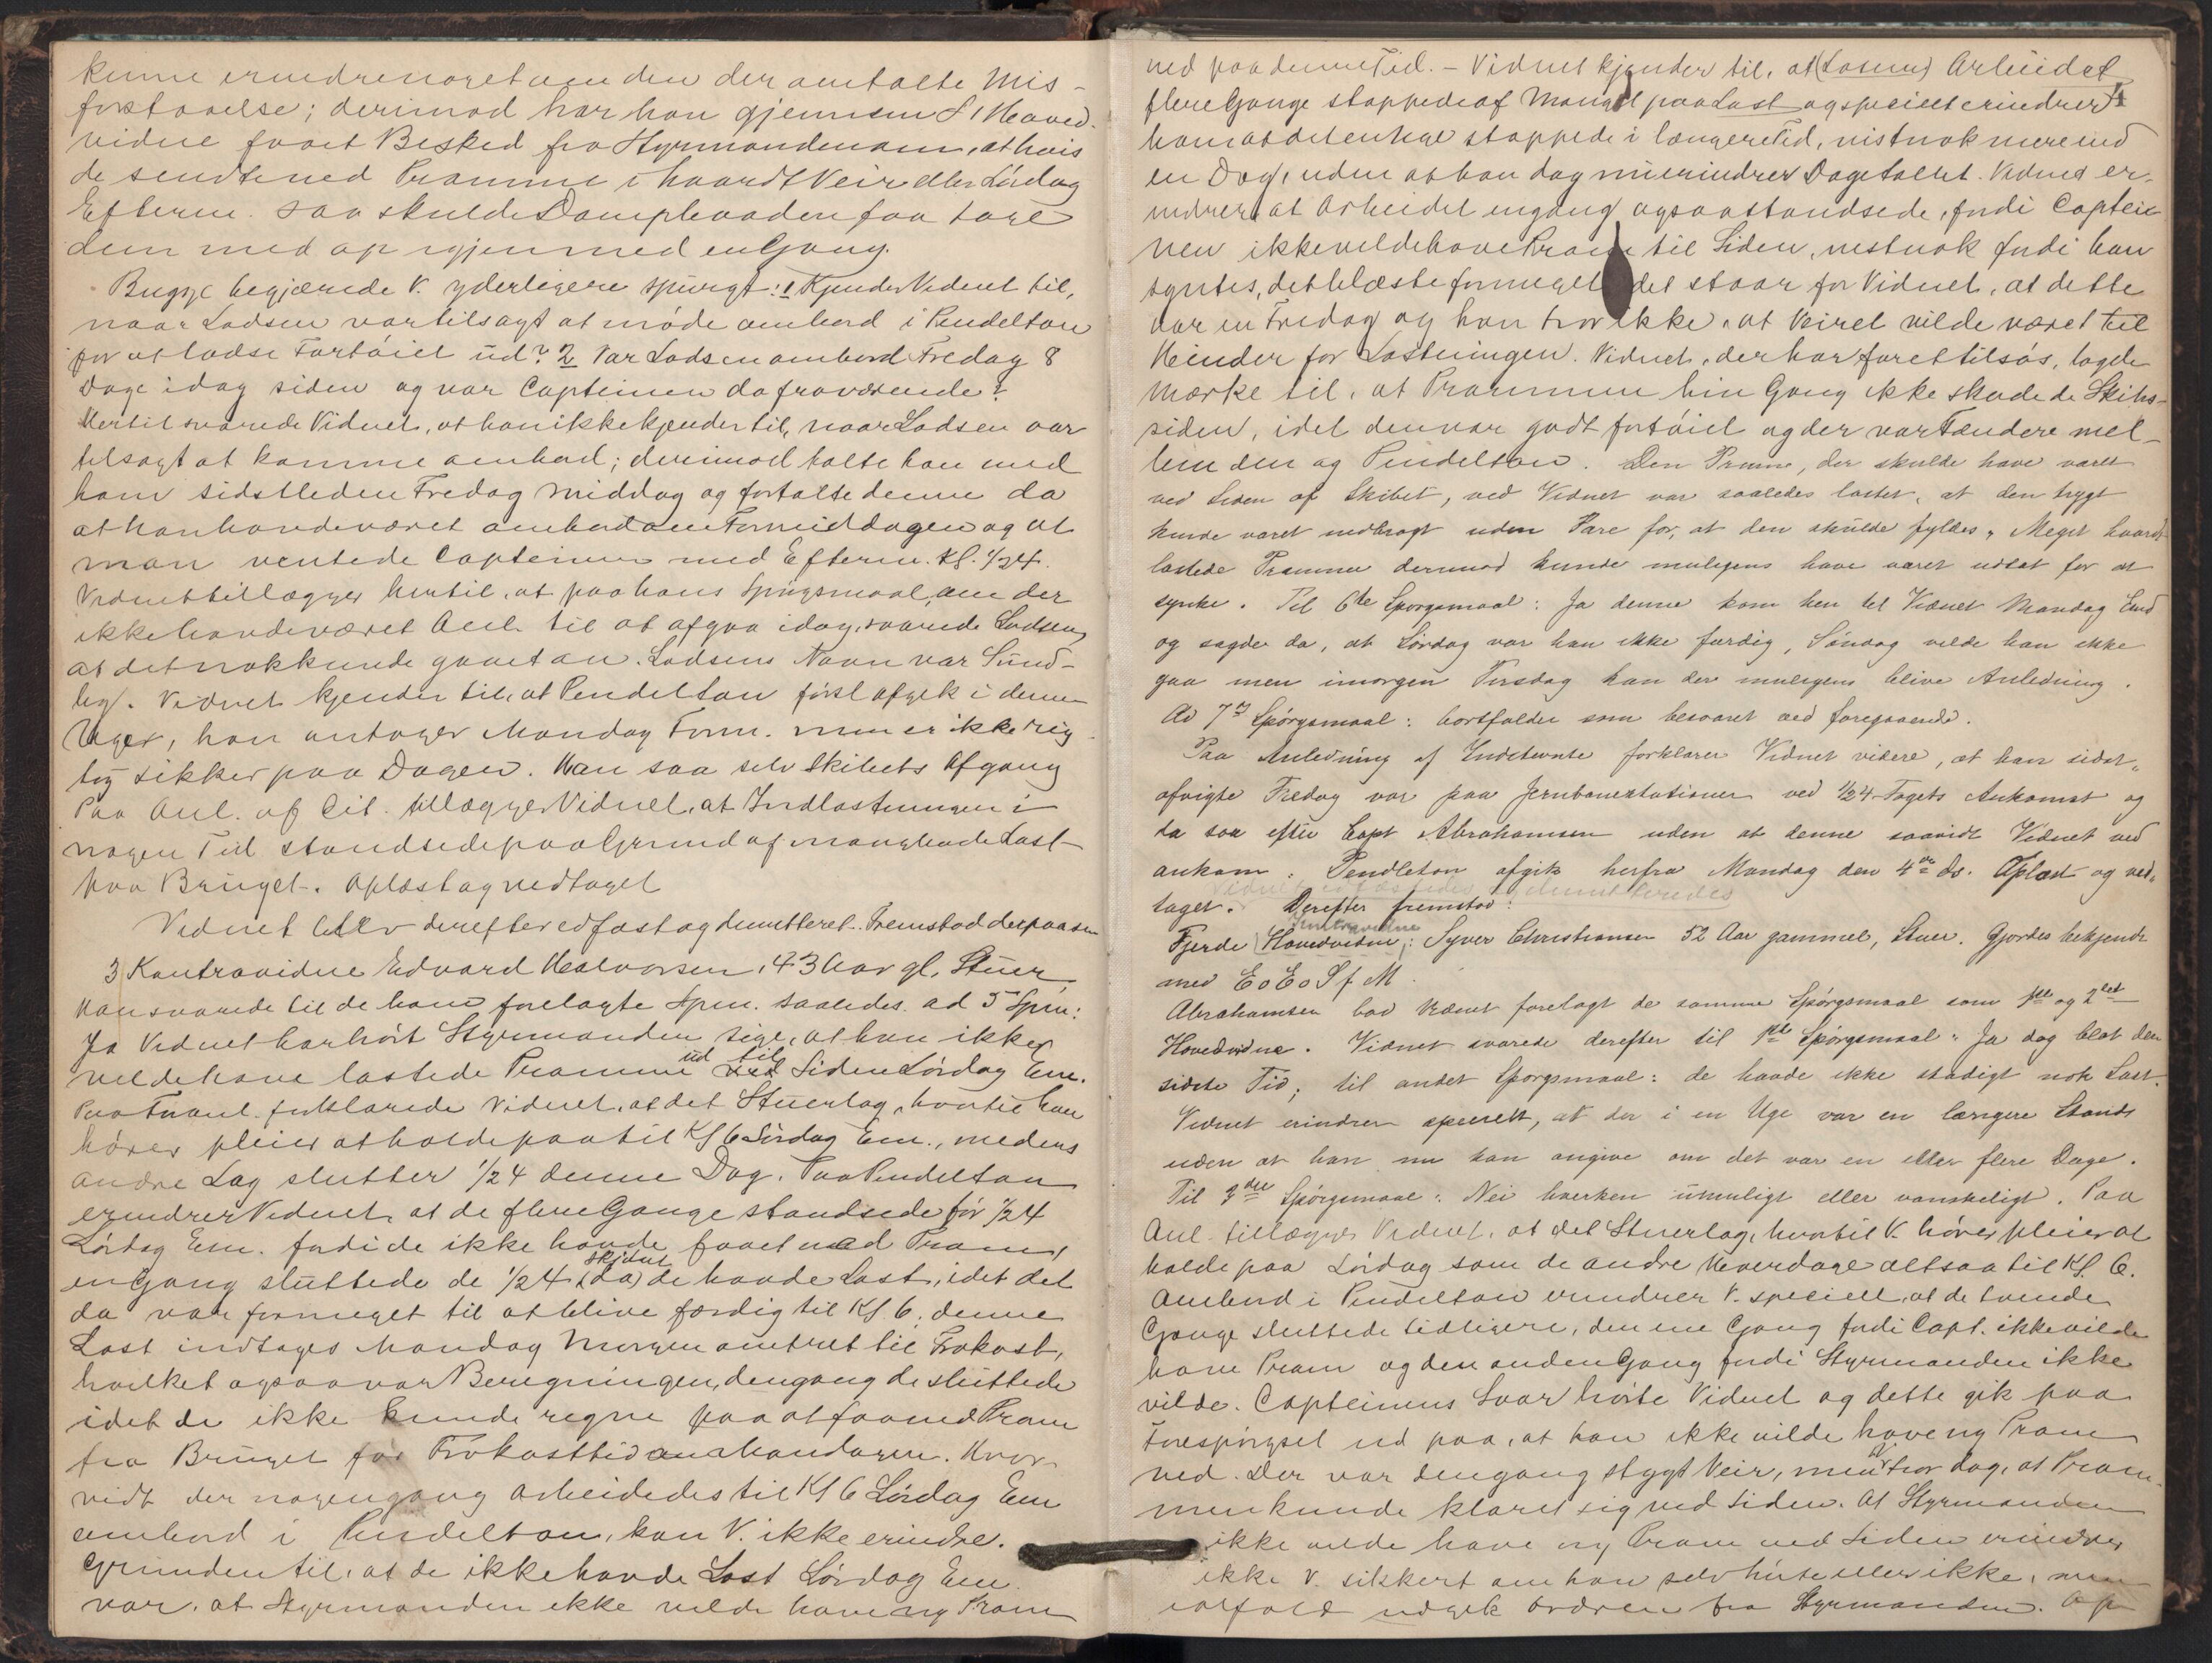 kunne erindre noget om den der omtalte Mis-
forstaaelse; derimod har han gjennem 1 Hoved-
vidne faaet Besked fra Styrmanden om, at hvis
de sendte ned Pramme i haardt Veir eller Lördag
Efterm. saa skulde Dampbaaden faa tage
dem med op igjen med engang.
Bugge begjærede V. yderligere spurgt: 1 Kjender Vidnet til,
naar Lodsen var tilsagt at möde ombord i Pendelton
for at lodse Fartöiet ud? 2 Var Lodsen ombord Fredag 8
Dage idag siden og var Capteinen da fraværende?
Hertil svarede Vidnet, at han ikke kjender til, naar Lodsen var
tilsagt at komme ombord; derimod talte han med
ham sidstleden Fredag Middag og fortalte denne da
at han havde været ombord om Formiddagen og at
man ventede Capteinen med Efterm. Kl. 1/2 4.
Vidnet tillægger hertil, at paa hans Spörgsmaal, om der
ikke havde været Anl. til at afgaa idag, svarede Lodsen,
at det nok kunde gaaet an. Lodsens Navn var Sund-
by. Vidnet kjender til, at Pendelton först afgik i denne
Uge, han antager Mandag Form. men er ikke rig-
tig sikker paa Dagen. Han saa selv Skibets Afgang
Paa Anl. af Cit. tillægger Vidnet, at Indlastningen i
nogen Tid standsede paa Grund af manglende Last
paa Bruget. Oplæst og vedtaget
Vidnet blev derefter edfæst og demitteret. Fremstod derpaa som
3 Kontravidne Edvard Halvorsen, 43 Aar gl. Stuer
Han svarede til de ham forelagte Spm. saaledes. ad 5 Spm:
Ja Vidnet har hört Styrmanden sige, at han ikke
vilde have lastede Pramme ud til Siden Lördag Em.
Paa Foranl. forklarede Vidnet, at det Stuerlag, hvortil han
hörer pleier at holde paa til Kl 6 Lördag Em., medens
andre Lag slutter 1/2 4 denne Dag. Paa Pendelton
erindrer Vidnet, at de flere Gange standsede för 1/2 4
Lördag Em. fordi de ikke havde faaet ned Pram,
en Gang sluttede de 1/2 4 (da) skjönt de havde Last, idet det
da var formeget til at blive færdig til Kl. 6; denne
Last indtages Mandag Morgen omtrent til Frokost,
hvilket ogsaa var Beregningen, dengang de sluttede
idet de ikke kunde regne paa at faa ned Pram
fra Bruget för Frokosttid om Mandagen. Hvor-
vidt der nogengang arbeidedes til Kl 6 Lördag Em
ombord i Pendelton, kan V. ikke erindre.
Grunden til, at de ikke havde Last Lördag Em.
var, at Styrmanden ikke vilde have ny Pram
ned paa denne Tid. – Vidnet kjender til, at (Losning) Arbeidet
flere Gange stoppede af Mangel paa Last og specielt erindrer
han at det engang stoppede i længere Tid, vistnok mere end
en Dag, uden at han dog nu erindrer Dagetallet. Vidnet er-
indrer, at Arbeidet engang ogsaa standsede, fordi Captei-
nen ikke vilde have Pram til Siden, vistnok fordi han
syntes, det blæste formeget det staar for Vidnet, at dette
var en Fredag og han tror ikke, at Veiret vilde været til
Hinder for Lastningen. Vidnet, der har faret tilsös, lagde
Mærke til, at Prammen hin Gang ikke skadede Skibs-
siden, idet den var godt fortöiet og der var Fændere mel-
lem den og Pendelton. Den Pramme, der skulde have været
ved Siden af Skibet, ved Vidnet var saaledes lastet, at den trygt
kunde været nedbragt uden Fare for, at den skulde fyldes. Meget haardt
lastede Pramme derimod kunde muligens have været udsat for at
synke. Til 6te Spörgsmaal: Ja denne kom hen til Vidnet Mandag Em.
og sagde da, at Lördag var han ikke færdig, Söndag vilde han ikke
gaa men imorgen Tirsdag kan der muligens blive Anledning.
Ad 7de Spörgsmaal: bortfalder som besvaret ved foregaaende.
Paa Anledning af Indstevnte forklarer Vidnet videre, at han sidst-
afvigte Fredag var paa Jernbanestationen ved 1/2 4-Togets Ankomst og
da saa efter Capt Abrahamsen uden at denne saavidt Vidnet ved
ankom. Pendleton afgik herfra Mandag den 4de ds. Oplæst og ved-
Vidnet edfæstedes og demitteredes
taget. Derefter fremstod:
Fjerde Hovedvidne Kontravidne: Syver Christiansen 52 Aar gammel, Stuer. Gjordes bekjendt
med E o E o S f M.
Abrahamsen bad Vidnet forelagt de samme Spörgsmaal som 1ste og 2det
Hovedvidne. Vidnet svarede derefter til 1ste Spörgsmaal: Ja dog blot den
sidste Tid; til andet Spörgsmaal: de havde ikke stadigt nok Last.
Vidnet erindrer specielt, at der i en Uge var en længere Stands
uden at han nu kan angive om det var en eller flere Dage.
Til 3die Spörgsmaal: Nei hverken umuligt eller vanskeligt. Paa
Anl. tillægger Vidnet, at det Stuerlag, hvortil V. hörer pleier at
holde paa Lördag som de andre Hverdage altsaa til Kl. 6.
Ombord i Pendelton erindrer V. specielt, at de tvende
Gange sluttede tidligere, den ene Gang fordi Capt. ikke vilde
have Pram og den anden Gang fordi Styrmanden ikke
vilde. Capteinens Svar hörte Vidnet og dette gik paa
Forespörgsel ud paa, at han ikke vilde have ny Pram
ned. Der var dengang stygt Veir, men V. tror dog, at Pram-
men kunde klaret sig ved Siden. At Styrmanden
ikke vilde have ny Pram ved Siden erindrer
ikke V. sikkert om han selv hörte eller ikke, men
ialfald udgik Ordren fra Styrmanden. Op-